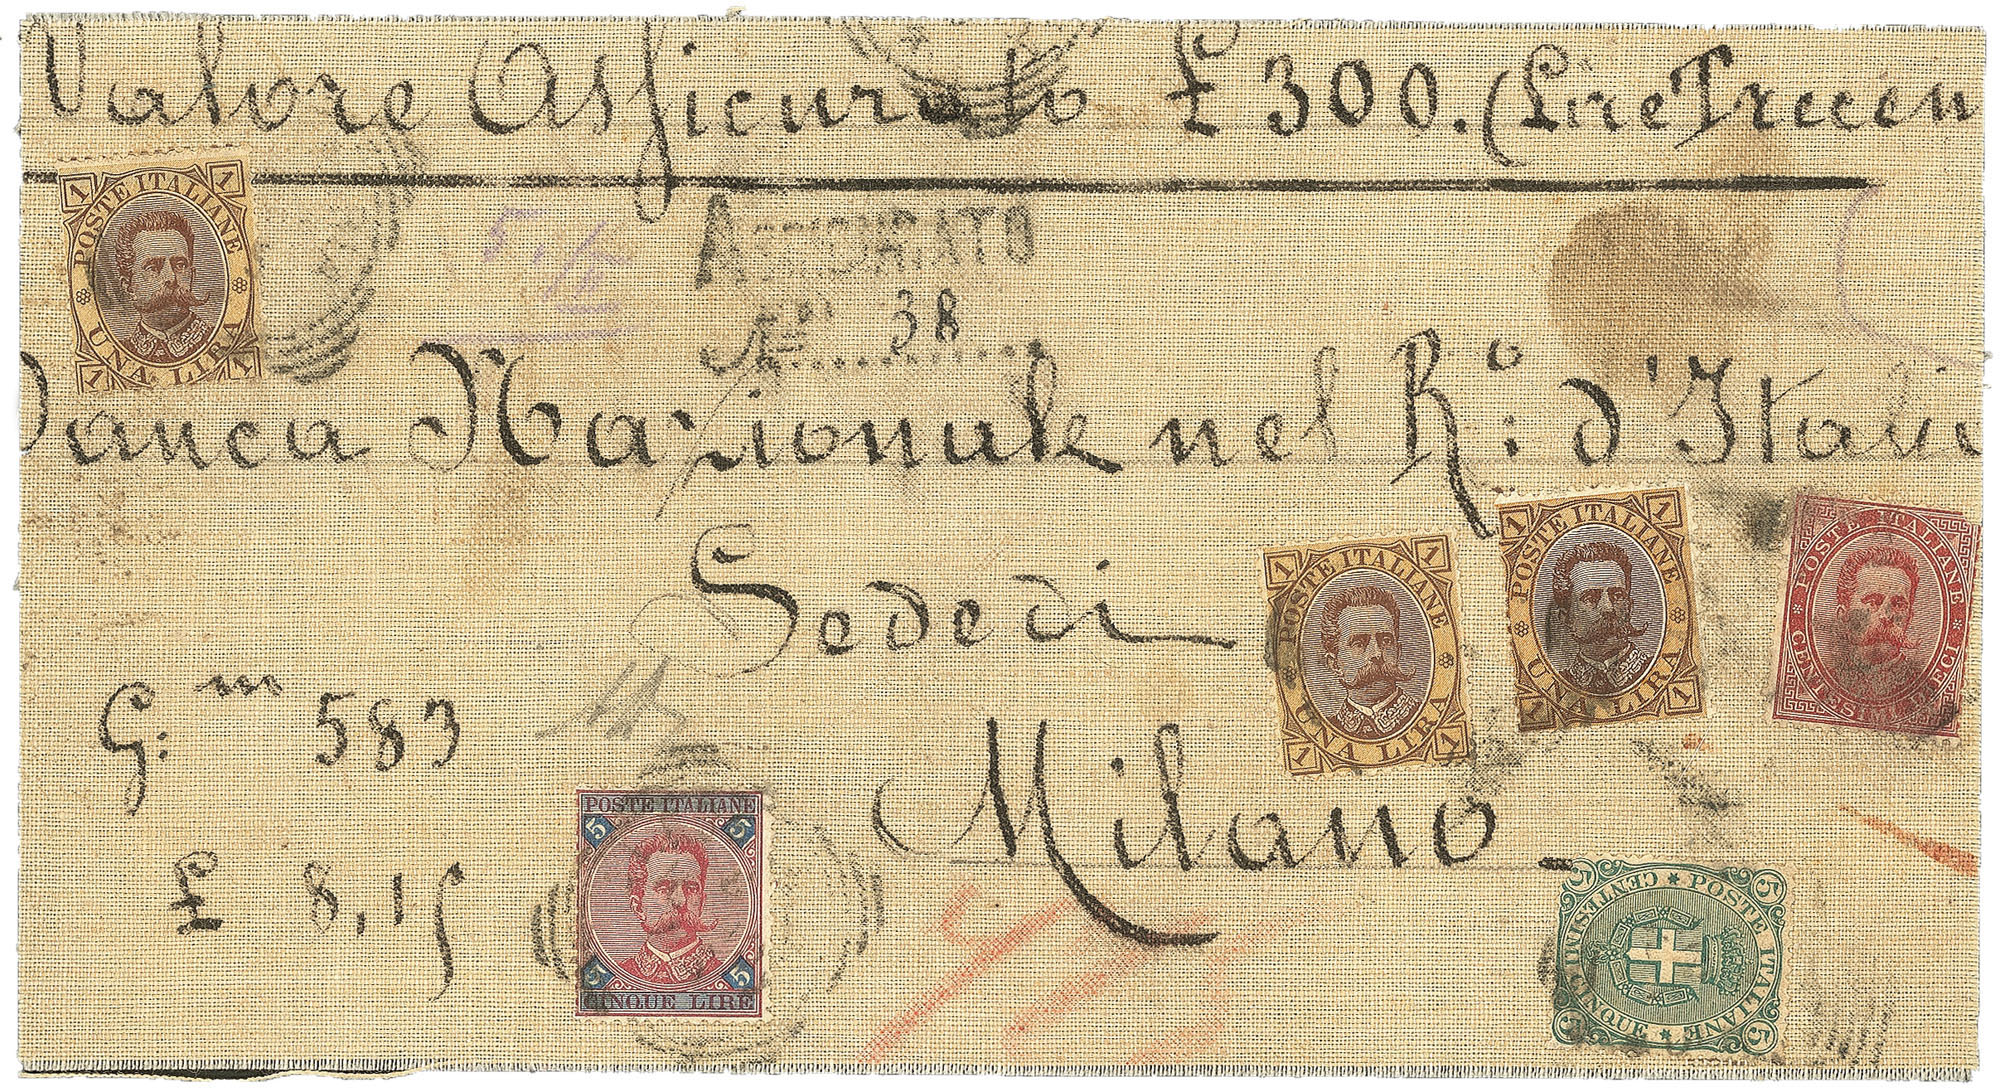 Valore Assicurato £ 300. (Lire Trecen
POSTE ITALIANE
1 1 1 1
UNA LIRA
ASSICURATO
N° 38
Banca Nazionale nel R.° d'Itali
Sede di
Milano
G.m 583
£ 8,15
POSTE ITALIANE
1 1 1 1
UNA LIRA
POSTE ITALIANE
1 1 1 1
UNA LIRA
POSTE ITALIANE
CENTESIMI DIECI
POSTE ITALIANE
5 5
5 5
CINQUE LIRE
POSTE ITALIANE
CINQUE CENTESIMI
5 5 5 5